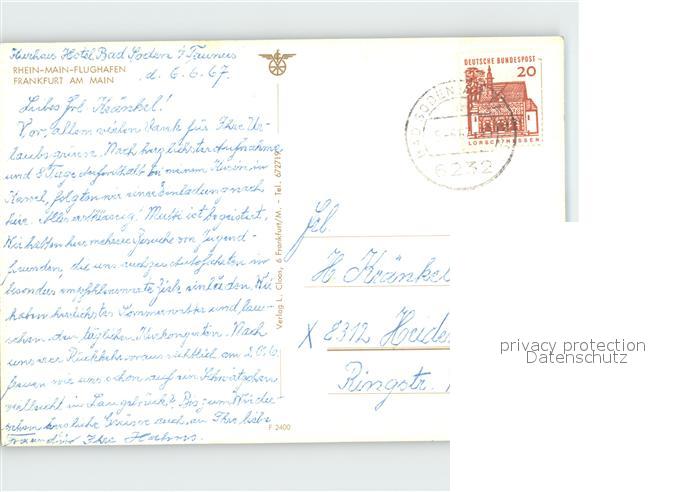 Kurhaus Hotel Bad Soden i/Taunus
RHEIN-MAIN-FLUGHAFEN
FRANKFURT AM MAIN
d. 6.6.67.
Liebes Frl. Kränkel!
Vor allem vielen Dank für Ihre Ur-
laubsgrüsse. Nach herzlichster Aufnahme
und 8 Tage Aufenthalt bei meinem Cousin in
Kassel, folgten wir einer Einladung nach
hier. Alles erstklassig! Mutti ist begeistert,
Wir hatten hier mehrere Besuche von Jugend-
freunden, die uns auch zu Autofahrten in
besonders empfehlenswerte Ziele einluden. Wir
haben herrlichstes Sommerwetter und lau-
schen den täglichen Kurkonzerten. Nach
unserer Rückkehr voraussichtlich am
freuen wir uns schon auf ein Schwätzchen
vielleicht in Langebrück? Bis zum Wieder-
sehen herzliche Grüsse auch an Ihre liebe
Freundin Ihre
Verlag L. Cloos, 6 Frankfurt/M. - Tel. 672719
F 2400
DEUTSCHE BUNDESPOST
20
LORSCH/HESSEN
BAD SODEN
6232
Frl.
H. Kränkel
X 8312 Heide
Ringstr.
privacy protection
Datenschutz